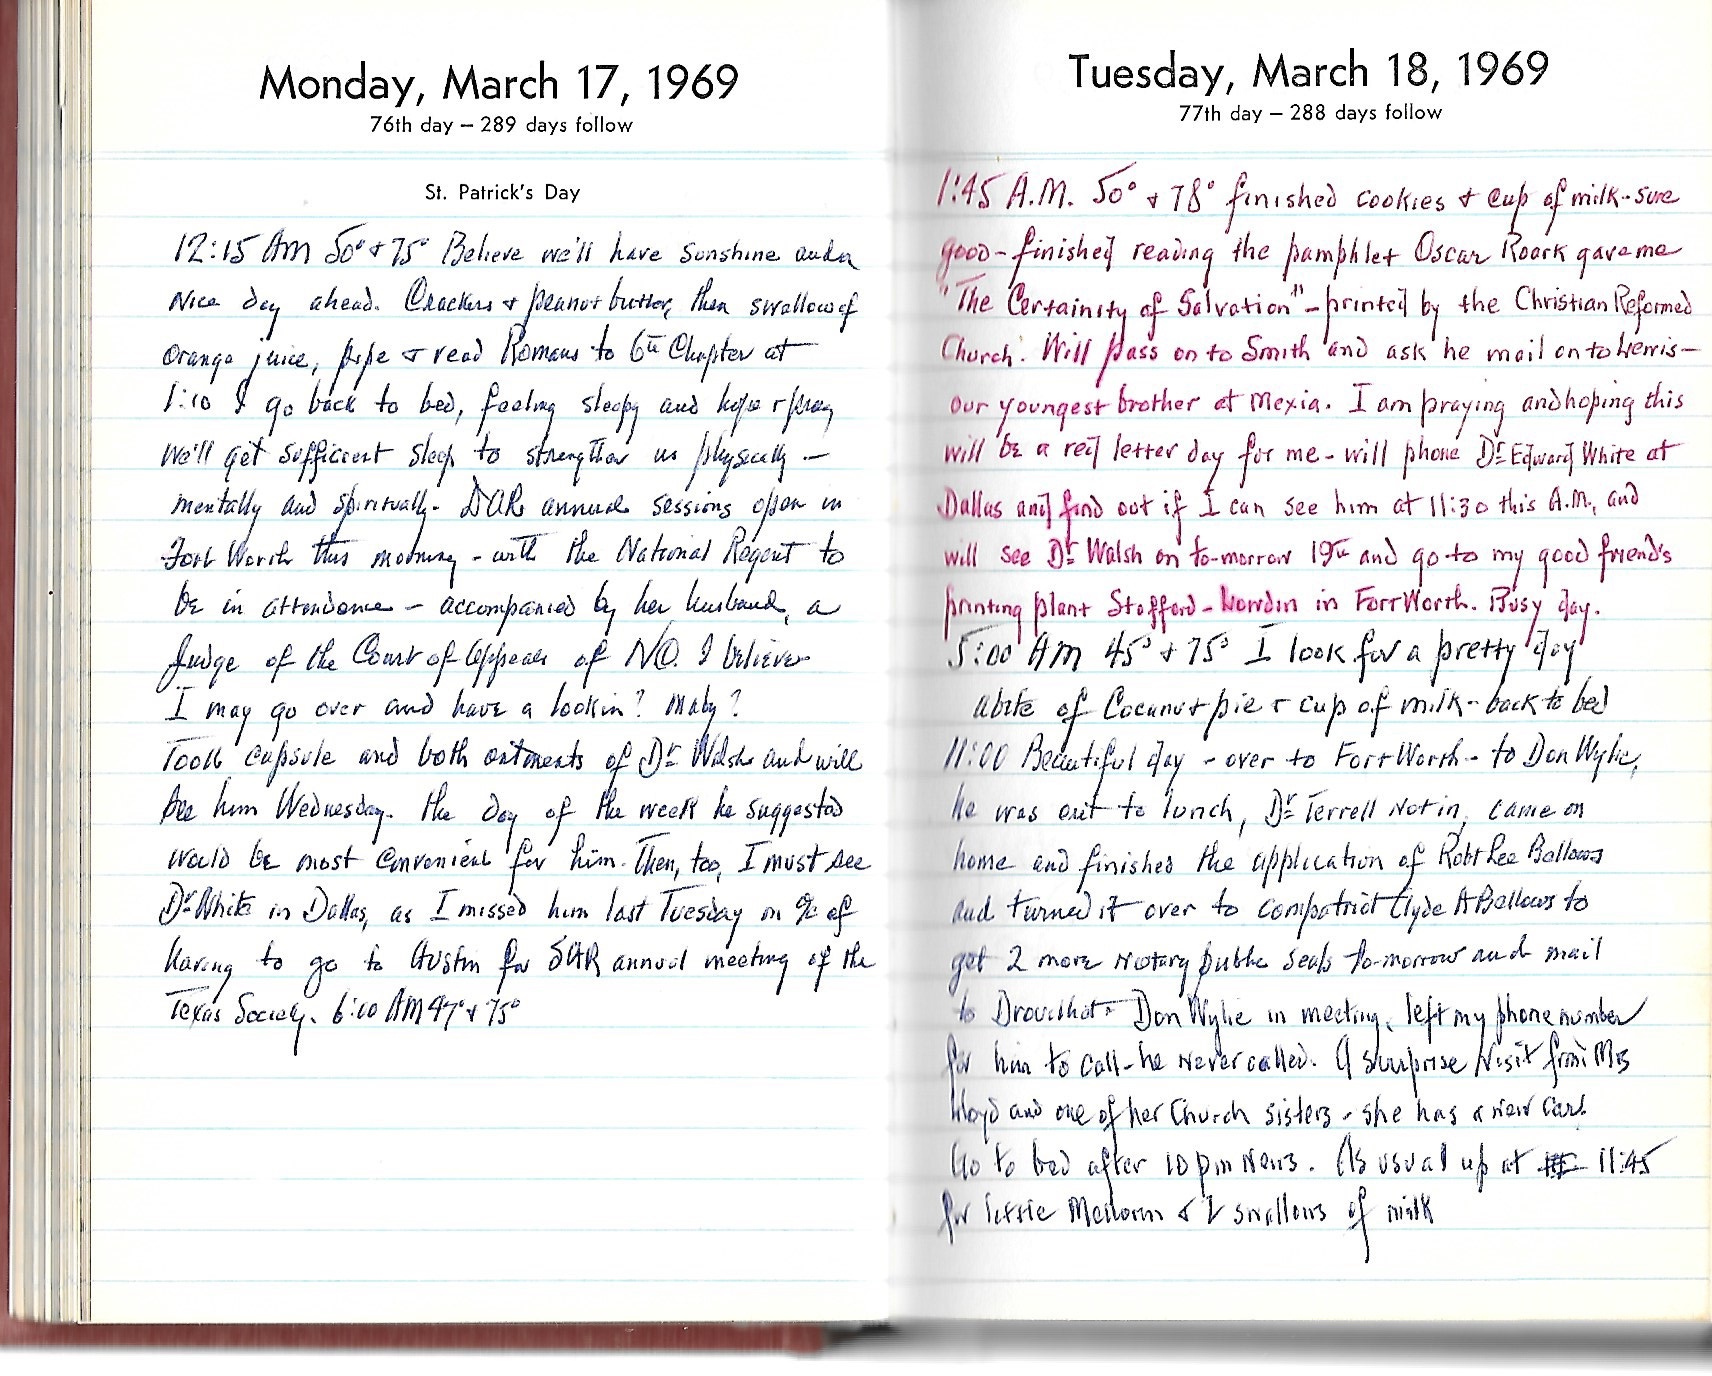 Monday, March 17, 1969
76th day – 289 days follow
St. Patrick's Day
12:15 AM 50° + 75° Believe we'll have sunshine and a
nice day ahead. Crackers + peanut butter, then swallow of
orange juice, pipe + read Romans to 6th Chapter at
1:10 I go back to bed, feeling sleepy and hope + pray
we'll get sufficient sleep to strengthen us physically –
mentally and spiritually. DAR annual sessions open in
Fort Worth this morning – with the National Regent to
be in attendance – accompanied by her husband, a
Judge of the Court of Appeals of NO. I believe
I may go over and have a look in? Maby?
Took capsule and both ointments of Dr Walsh and will
see him Wednesday. the day of the week he suggested
would be most convenient for him. Then, too, I must see
Dr White in Dallas, as I missed him last Tuesday on % of
having to go to Austin for SAR annual meeting of the
Texas Society. 6:00 AM 47° + 75°
Tuesday, March 18, 1969
77th day – 288 days follow
1:45 A.M. 50° + 78° finished cookies + cup of milk - sure
good - finished reading the pamphlet Oscar Roark gave me
"The Certainity of Salvation" – printed by the Christian Reformed
Church. Will pass on to Smith and ask he mail on to Lewis –
our youngest brother at Mexia. I am praying and hoping this
will be a red letter day for me - will phone Dr Edward White at
Dallas and find out if I can see him at 11:30 this A.M., and
will see Dr Walsh on to-morrow 19th and go to my good friend's
printing plant Stafford - Lowdon in Fort Worth. Busy day.
5:00 AM 45° + 75° I look for a pretty day
a bite of Cocanut pie + cup of milk - back to bed
11:00 Beautiful day - over to Fort Worth - to Don Wylie,
he was out to lunch, Dr Terrell not in, came on
home and finished the application of Robt Lee Bellows
and turned it over to compatriot Clyde A Bellows to
get 2 more Notary public seals to-morrow and mail
to Don Wylie in meeting, left my phone number
for him to call - he never called. A surprise visit from Mrs
Lloyd and one of her Church sisters - she has a new car!
Go to bed after 10 pm News. As usual up at 11:45
for & 2 swallows of milk